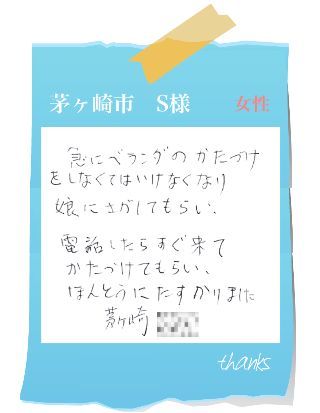 茅ヶ崎市　S様　女性
急にベランダのかたづけ
をしなくてはいけなくなり
娘にさがしてもらい、
電話したらすぐ来て
かたづけてもらい、
ほんとうにたすかりました
茅ヶ崎
thanks